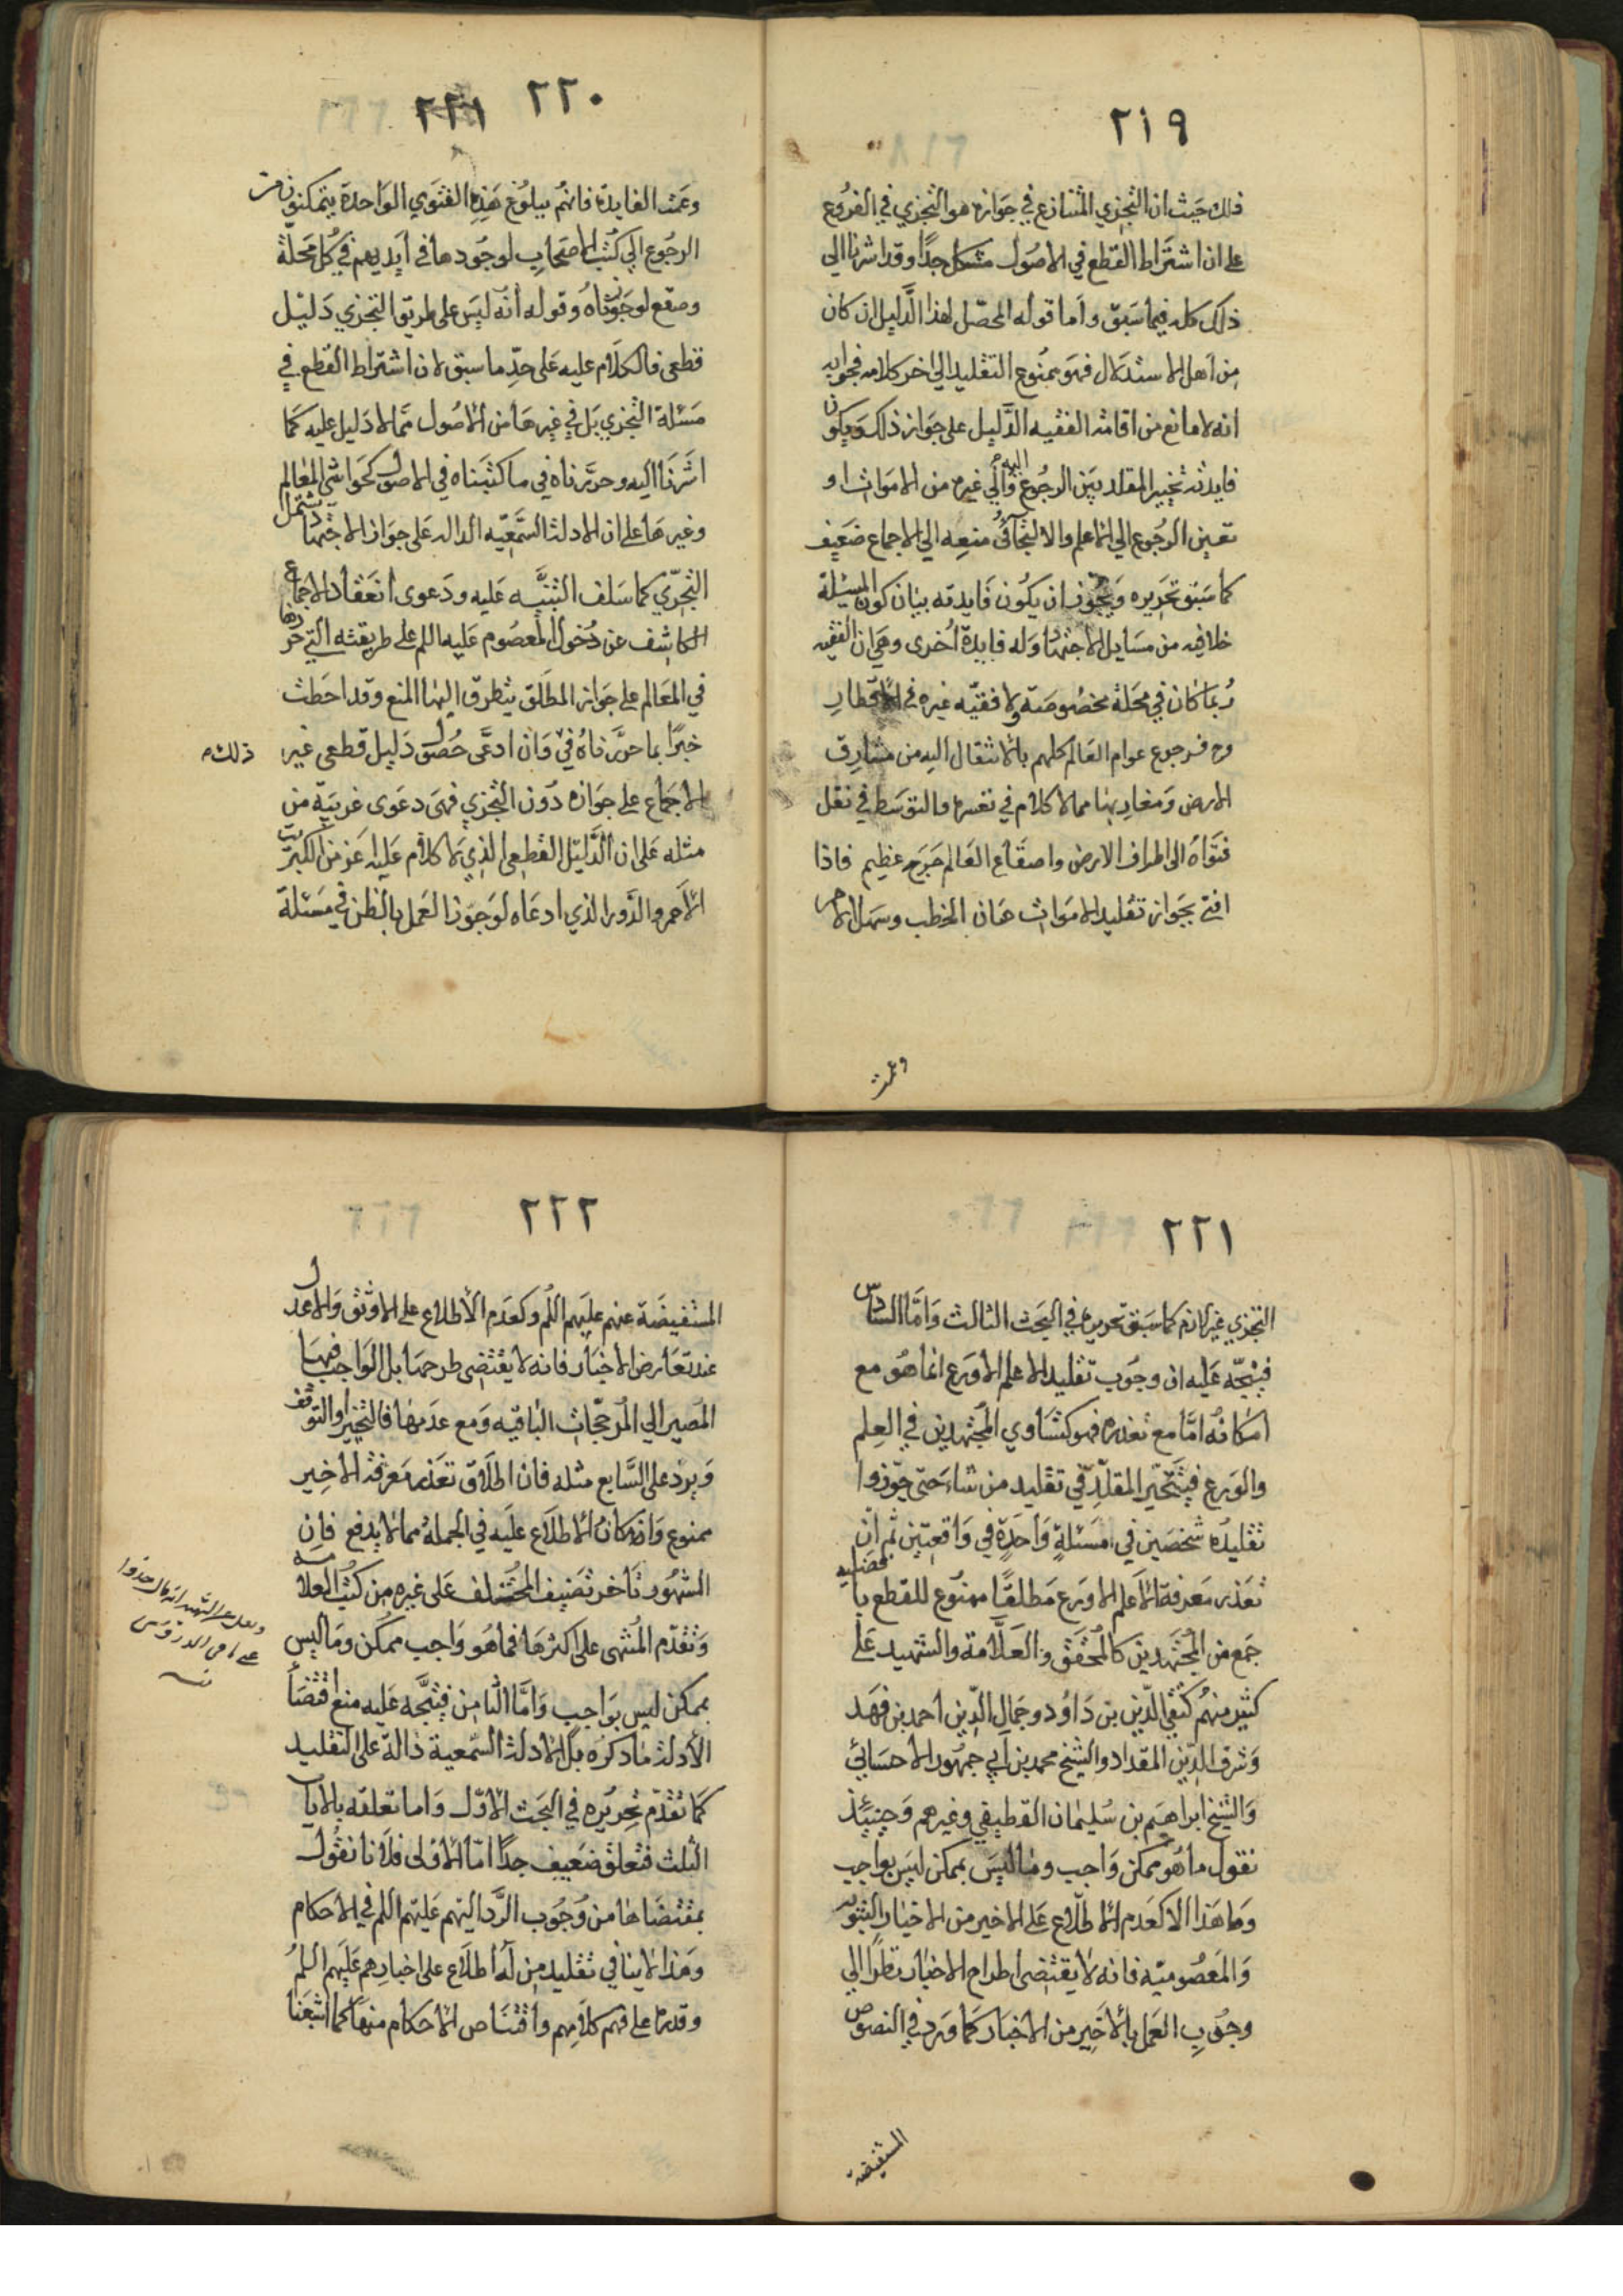 ٢١٩
ذلك حيث ان التجزي المتنازع في جوازه هو التجزي في الفروع
على ان اشتراط القطع في الاصول مشكل جدا وقد اشرنا الى
ذلك كله فيما سبق واما قوله المحصل لهذا الدليل ان كان
من اهل الاستدلال فهو ممنوع التقليد الى اخر كلامه فجوابه
انه لا مانع من اقامة الفقيه الدليل على جواز ذلك ويكون
فايدته تخيير المقلد بين الرجوع اليه والى غيره من الاموات او
تعين الرجوع الى الاعلم والالتجاء في منعه الى الاجماع ضعيف
كما سبق تحريره ويجوز ان يكون فايدته بيان كون المسئلة
خلافيه من مسايل الاجتهاد وله فايدة اخرى وهي ان الفقيه
ربما كان في محلة مخصوصة ولا فقيه غيره في الاقطار
وح فرجوع عوام العالم كلهم بالانتقال اليه من مشارق
الارض ومغاربها مما لا كلام في تعسره والتوسط في نقل
فتواه الى اطراف الارض واصقاع العالم حرج عظيم فاذا
افتى بجواز تقليد الاموات هان الخطب وسهل الامر
وعمت
٢٢٠
وعمت الفايدة فانهم ببلوغ هذه الفتوي الواحدة يتمكنون من
الرجوع الى كتب الاصحاب لوجودها في ايديهم في كل محلة
وصقع لوجوزناه وقوله انه ليس على طريق التجزي دليل
قطعى فالكلام عليه على حد ما سبق لان اشتراط القطع في
مسئلة التجزي بل في غيرها من الاصول مما لا دليل عليه كما
اشرنا اليه وحررناه في ما كتبناه في الاصول كحواشي المعالم
وغيرها على ان الادلة السمعيه الداله على جواز الاجتهاد تشتمل
التجزي كما سلف التنبيه عليه ودعوى انعقاد الاجماع
الكاشف عن دخول المعصوم عليه السلم على طريقته التي حررها
في المعالم على جواز المطلق يتطرق اليها المنع وقد احطت
خبرا بما حررناه في وان ادعى حصول دليل قطعى غير
ذلك
الاجماع على جوازه دون التجزي فهى دعوى غريبة من
مثله على ان الدليل القطعى الذي لا كلام عليه اعز من الكبريت
الاحمر والدور الذي ادعاه لوجوز العمل بالظن في مسئلة
٢٢١
التجزي غير لازم كما سبق تحريره في البحث الثالث واما السادس
فيتجه عليه ان وجوب تقليد الاعلم الاورع انما هو مع
امكانه اما مع تعذره فهو كتساوي المجتهدين في العلم
والورع فيتخير المقلد في تقليد من شاء حتى جوزوا
تقليده شخصين في مسئلة واحدة في واقعتين ثم ان
تعذر معرفة الاعلم الاورع مطلقا ممنوع للقطع بافضلية
جمع من المجتهدين كالمحقق والعلامة والشهيد على
كثير منهم كتقي الدين بن داود وجمال الدين احمد بن فهد
وشرف الدين المقداد والشيخ محمد بن ابي جمهور الاحسائي
والشيخ ابراهيم بن سليمان القطيفي وغيرهم وحينئذ
نقول ما هو ممكن واجب وما ليس بممكن ليس بواجب
وما هذا الا كعدم الاطلاع على الاخير من الاخبار النبويه
والمعصوميه فانه لا يقتضى اطراح الاخبار نظرا الى
وجوب العمل بالاخير من الاخبار كما ورد في النصوص
المستفيضة
٢٢٢
المستفيضة عنهم عليهم السلم وكعدم الاطلاع على الاوثق والاعدل
عند تعارض الاخبار فانه لا يقتضى طرحها بل الواجب فيها
المصير الى المرجحات الباقيه ومع عدمها فالتخيير او التوقف
ويرد على السابع مثله فان اطلاق تعذر معرفة الاخير
ممنوع وامكان الاطلاع عليه في الجملة مما لا يدفع فان
المشهور تاخر تصنيف المختلف على غيره من كتب العلامه
وتقدم المنتهى على اكثرها فما هو واجب ممكن وما ليس
بممكن ليس بواجب واما الثامن فيتجه عليه منع اقتضاء
الادلة ما ذكره بل الادلة السمعية دالة على التقليد
كما تقدم تحريره في البحث الاول واما تعلقه بالايات
الثلث فتعلق ضعيف جدا اما الاولى فلانا نقول
بمقتضاها من وجوب الرد اليهم عليهم السلم في الاحكام
وهذا لا ينافي تقليد من له اطلاع على اخبارهم عليهم السلم
وقدرة على فهم كلامهم واقتناص الاحكام منها كما اشبعنا